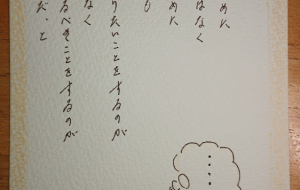 めに
はなく
めに
も
りたいことをするのが
なく
るべきことをするのが
だ。と
……